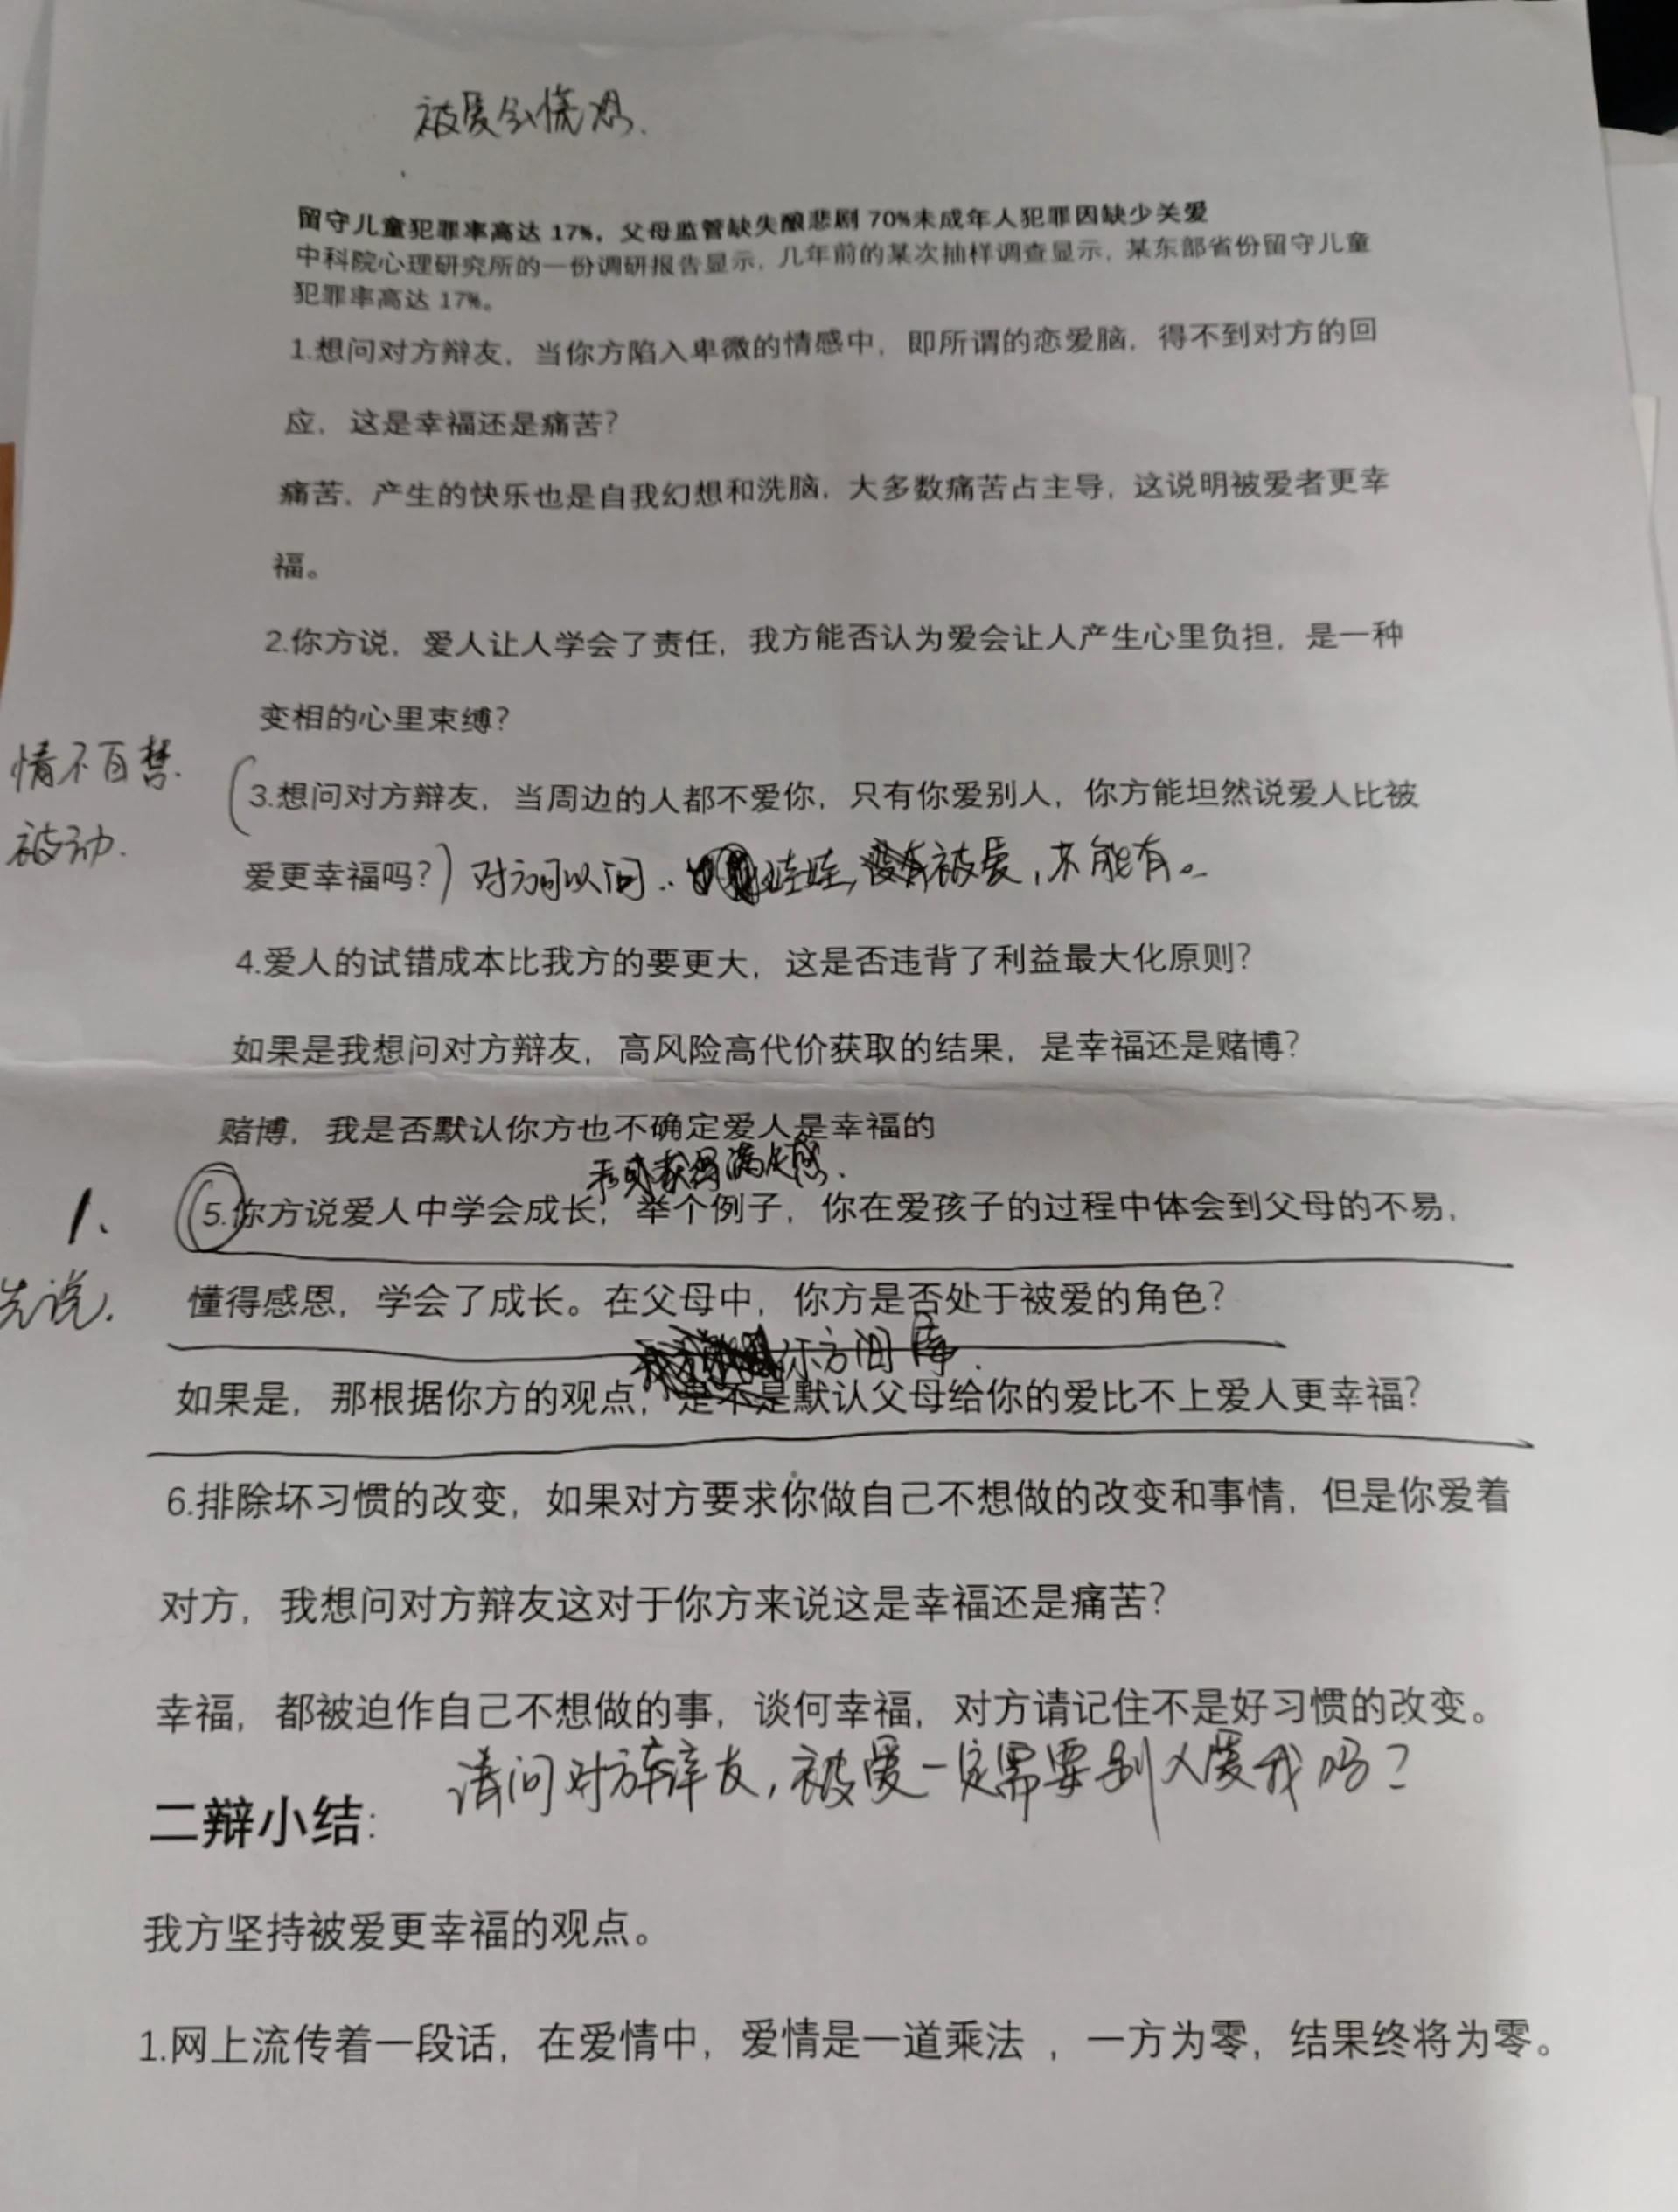 被爱会慌恐.
留守儿童犯罪率高达 17%，父母监管缺失酿悲剧 70%未成年人犯罪因缺少关爱
中科院心理研究所的一份调研报告显示，几年前的某次抽样调查显示，某东部省份留守儿童
犯罪率高达 17%。
1.想问对方辩友，当你方陷入卑微的情感中，即所谓的恋爱脑，得不到对方的回
应，这是幸福还是痛苦？
痛苦，产生的快乐也是自我幻想和洗脑，大多数痛苦占主导，这说明被爱者更幸
福。
2.你方说，爱人让人学会了责任，我方能否认为爱会让人产生心里负担，是一种
变相的心里束缚？
情不自禁.
(3.想问对方辩友，当周边的人都不爱你，只有你爱别人，你方能坦然说爱人比被
被动.
爱更幸福吗？) 对方可以问.. 娃娃, 被爱, 才能有。
4.爱人的试错成本比我方的要更大，这是否违背了利益最大化原则？
如果是我想问对方辩友，高风险高代价获取的结果，是幸福还是赌博？
赌博，我是否默认你方也不确定爱人是幸福的
获得满足感.
1、
5.你方说爱人中学会成长，举个例子，你在爱孩子的过程中体会到父母的不易，
先说.
懂得感恩，学会了成长。在父母中，你方是否处于被爱的角色？
你方
如果是，那根据你方的观点，是不是默认父母给你的爱比不上爱人更幸福？
6.排除坏习惯的改变，如果对方要求你做自己不想做的改变和事情，但是你爱着
对方，我想问对方辩友这对于你方来说这是幸福还是痛苦？
幸福，都被迫作自己不想做的事，谈何幸福，对方请记住不是好习惯的改变。
请问对方辩友, 被爱一定需要别人爱我吗？
二辩小结：
我方坚持被爱更幸福的观点。
1.网上流传着一段话，在爱情中，爱情是一道乘法 ，一方为零，结果终将为零。